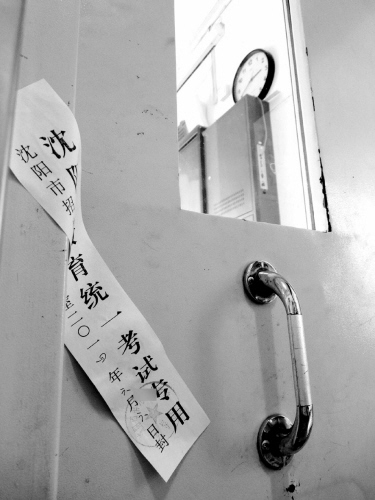 沈 育统一考试专用
沈阳市招 至二〇一四年六月六日封